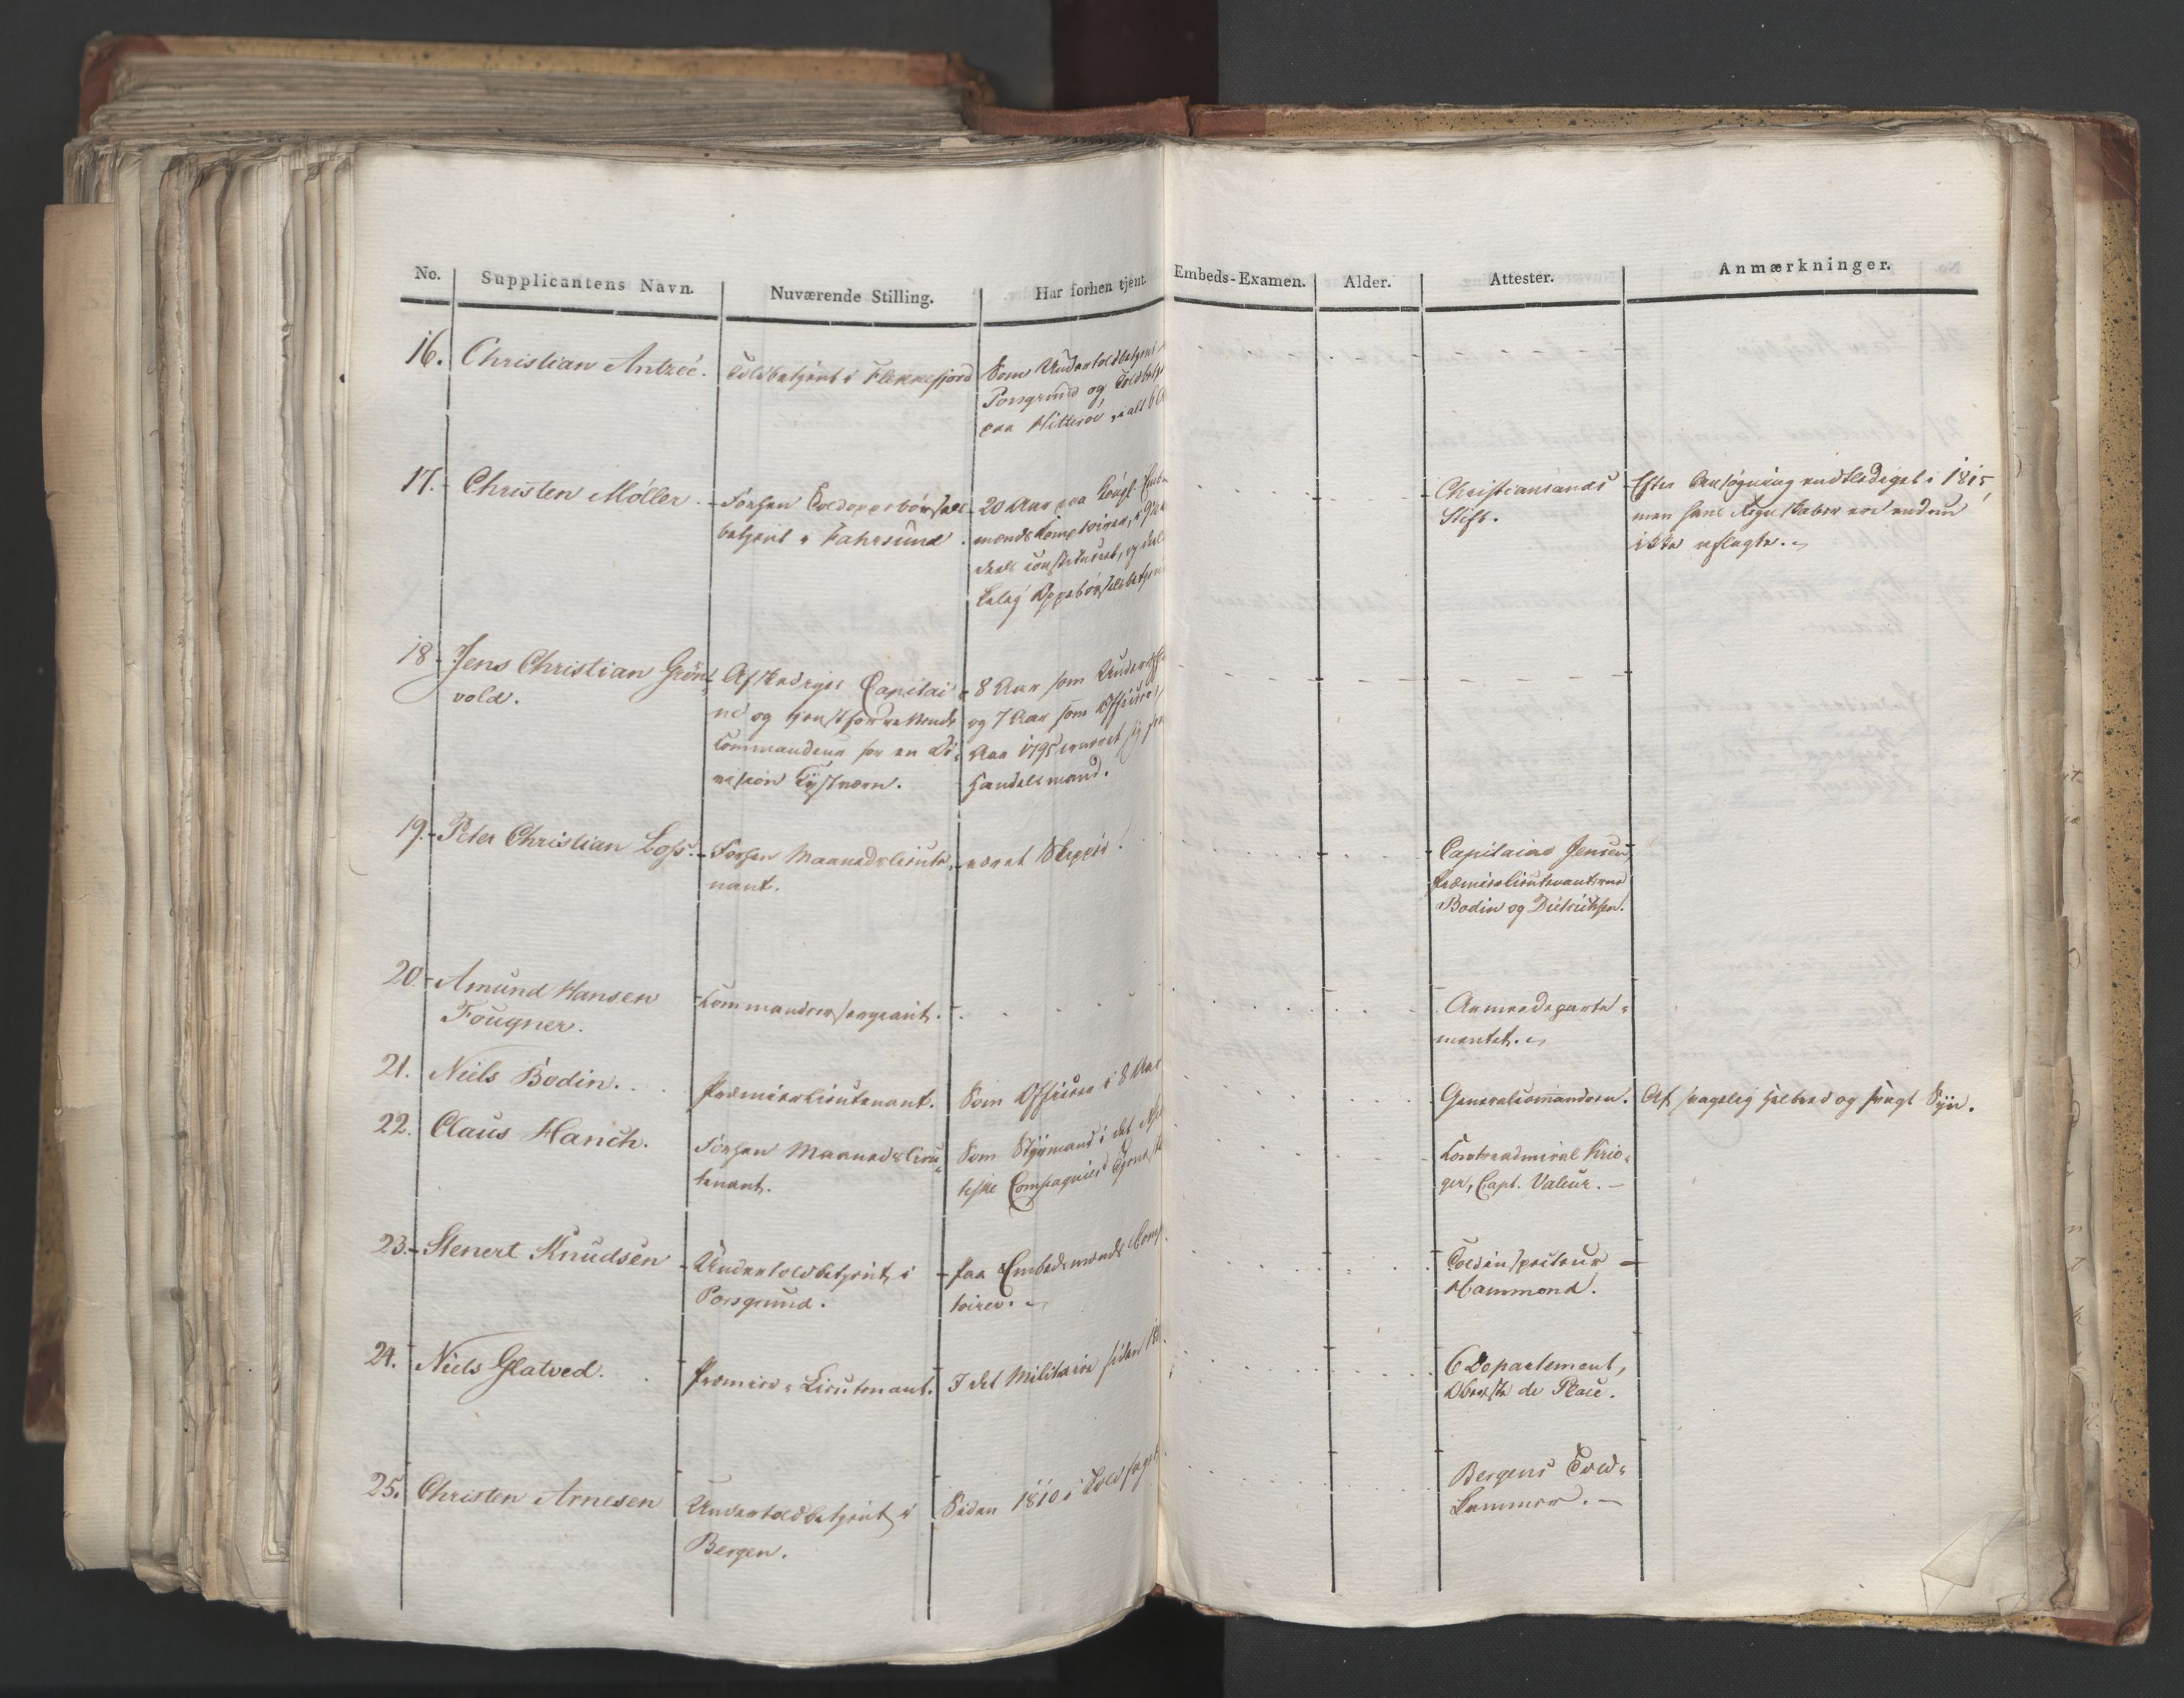 No. Supplicantens Navn. Nuværende Stilling. Har forhen tjent. Embeds-Examen. Alder. Attester. Anmærkninger.
16. Christian Antzeé. Toldbetjent i Flekkefjord Som Undertoldbetjent
Porsgrund og Toldbetj
paa Hitterøe, i alt 6 A
17. Christen Møller. Forhen Toldoppebørsels
betjent i Fahrsund.
20 Aar paa Kongl. Emb
mands Comptoirer, i 9
deels constitueret, og deels
Oppebørselsbetjent
Christiansands
Stift.
Efter Ansøgning entlediget i 1815,
men hans Regnskaber ere endnu
ikke aflagte.
18. Jens Christian Grön
vold.
Afskediget Capitai
ne og tjenstforrettende
Commandeur for en Di
vision Kystværn.
8 Aar som Underoffi
og 7 Aar som Officier,
Aar 1795 ernæret sig som
Handelsmand.
19. Peter Christian Loss. Forhen Maanedslieute
nant.
været Skipper.
Capitaine Jensen,
Premierlieutenanterne
Bodin og Dietrichsen.
20. Amund Hansen
Fougner.
Commandeersergeant.
Armeedeparte
mentet.
21. Niels Bodin. Premierlieutenant. Som Officier i 8 Aar Generalcommandoen. Af svageligt Helbred og svagt Syn.
22. Claus Hanch. Forhen Maanedslieu
tenant.
Som Styrmand i det
tiske Compagnies Tjeneste
Contreadmiral Krie
ger, Capt. Valeur.
23. Stenert Knudsen Undertoldbetjent i
Porsgrund.
paa Embedsmænds Comp
toirer.
Toldinspecteur
Hammond.
24. Niels Glatved. Premier Lieutenant. I det Militaire siden 18 6 Departement,
Oberste de Place.
25. Christen Arnesen Undertoldbetjent i
Bergen.
Siden 1810 i Toldfaget
Bergens Told
kammer.